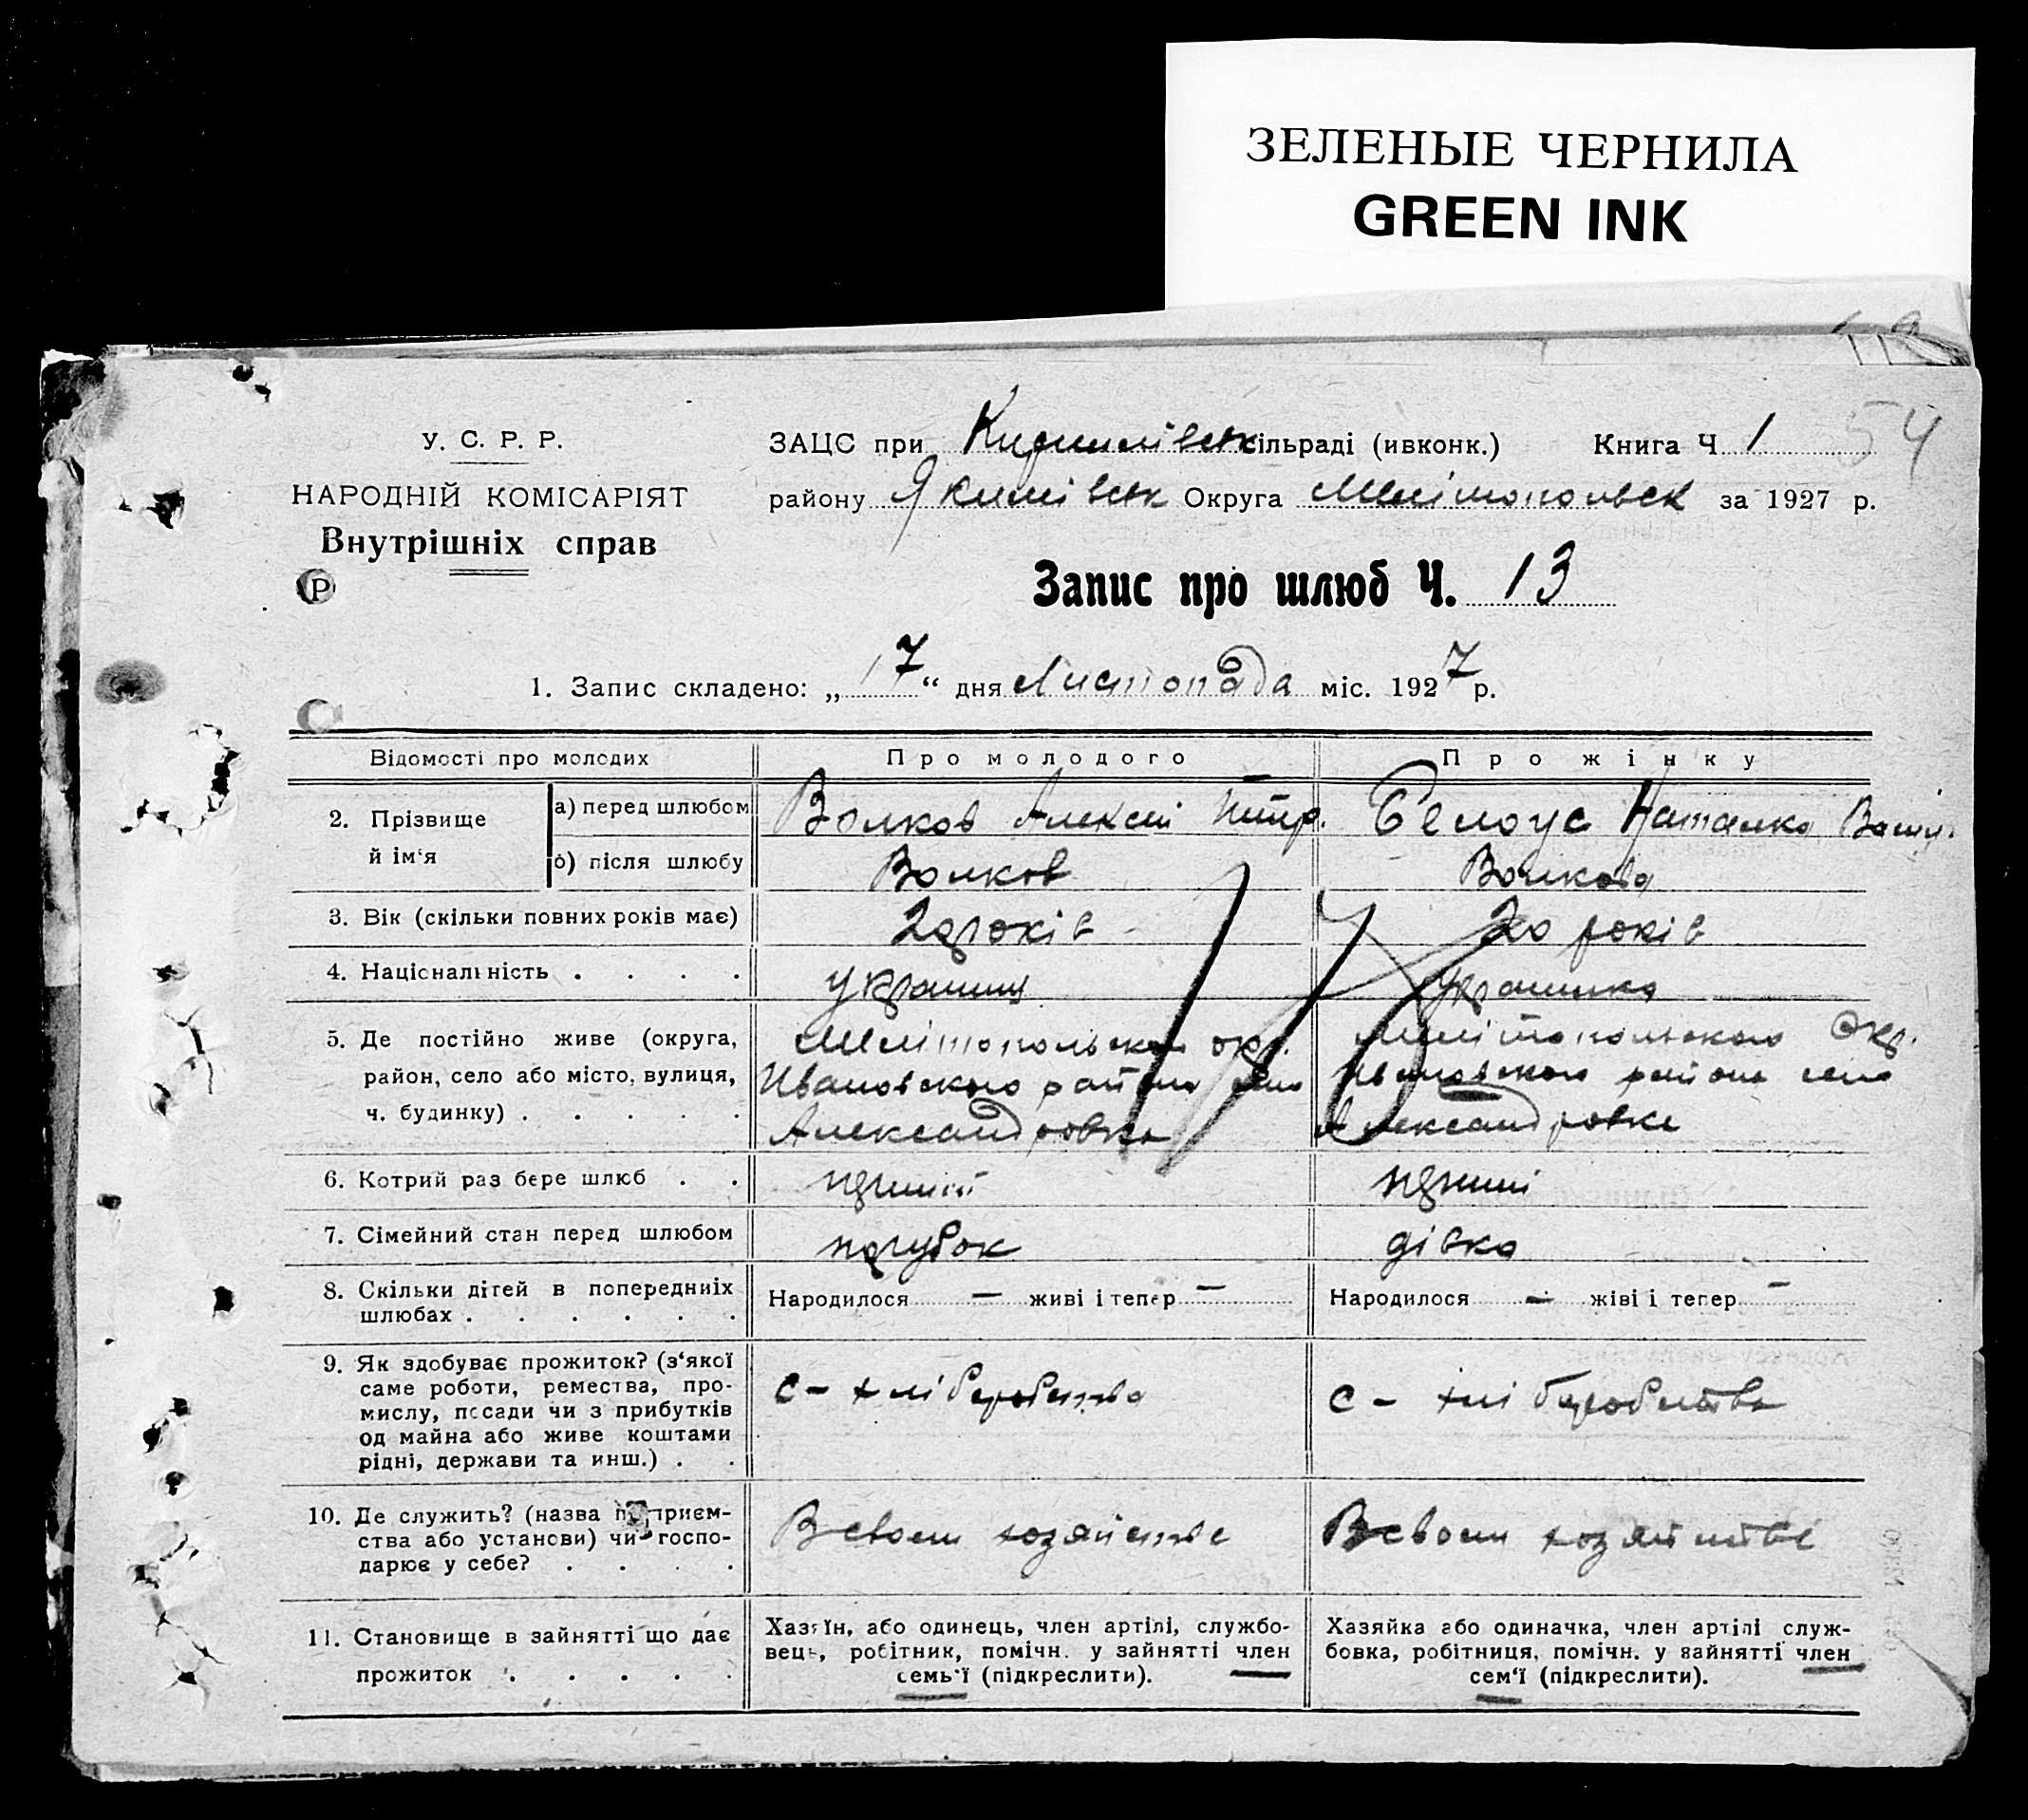 ЗЕЛЕНЫЕ ЧЕРНИЛА
GREEN INK
54
У. С. Р. Р.
НАРОДНІЙ КОМІСАРІЯТ
Внутрішніх справ
ЗАЦС при Кирилівськ сільраді (ивконк.) Книга Ч 1
району Якимівськ Округа Мелітопольськ за 1927 р.
Запис про шлюб Ч. 13
1. Запис складено: „17“ дня Листопада міс. 1927 р.
Відомості про молодих Про молодого Про жінку
2. Прізвище й ім‘я
а) перед шлюбом Волков Алексій Петр. Белоус Наталка
б) після шлюбу Волков Волкова
3. Вік (скільки повних років має) років 20 років
4. Національність . . . . українец українка
5. Де постійно живе (округа, Мелітопольского окр. Мелітопольского Окр.
район, село або місто, вулиця, Ивановского района село Ивановского района село
ч. будинку) . . . . . Александровка Александровке
6. Котрий раз бере шлюб . . перший перший
7. Сімейний стан перед шлюбом парубок дівка
8. Скільки дітей в попередніх Народилося — живі і тепер — Народилося — жіві і тепер —
шлюбах . . . . . .
9. Як здобуває прожиток? (з‘якої
саме роботи, ремества, про- с - хліборобства с - хліборобства
мислу, посади чи з прибутків
од майна або живе коштами
рідні, держави та инш.) . .
10. Де служить? (назва підприєм-
ства або установи) чи госпо- В своем хозяйстве В своем хозяйстве
дарює у себе? . . . .
11. Становище в зайнятті що дає
прожиток . . . . .
Хазяїн, або одинець, член артілі, службо-
вець, робітник, помічн. у зайнятті член
семь‘ї (підкреслити).
Хазяйка або одиначка, член артілі служ-
бовка, робітниця, помічн. у зайнятті член
сем‘ї (підкреслити).